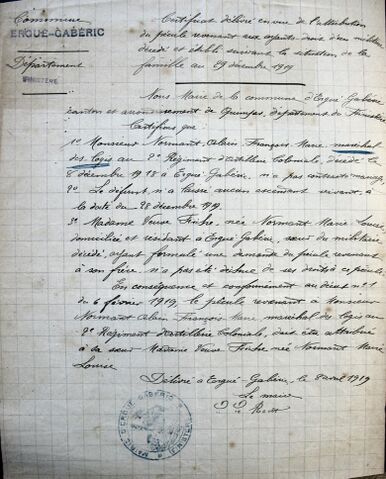 Commune
ERGUÉ-GABÉRIC
Département
FINISTÈRE
Certificat délivré en vue de l'attribution
du pécule revenant aux ayants droit d'un militaire
décédé et établi suivant la situation de la
famille au 29 décembre 1919
Nous Maire de la commune d'Ergué Gabéric
canton et arrondissement de Quimper, département du Finistère
Certifions que :
1º Monsieur Normant Alain François Marie maréchal
des logis au 2e Régiment d'artillerie Coloniale, décédé le
8 décembre 1918 à Ergué-Gabéric, n'a pas contracté mariage.
2º Le défunt n'a laissé aucun ascendant vivant, à
la date du 28 décembre 1919.
3º Madame Veuve née Normant Marie Louise,
domiciliée et résidant à Ergué-Gabéric, sœur du militaire
décédé, ayant formulé une demande du pécule revenant
à son frère, n'a pas été déchue de ses droits à ce pécule
En conséquence et conformément au décret nº 1
du 6 février 1919, le pécule revenant à Monsieur
Normant Alain François Marie maréchal des logis au
2e Régiment d'artillerie Coloniale, doit être attribué
à sa sœur Madame Veuve née Normant Marie
Louise
Délivré à Ergué-Gabéric, le 8 avril 1919
Le maire
MAIRIE D'ERGUÉ-GABÉRIC
(FINISTÈRE)